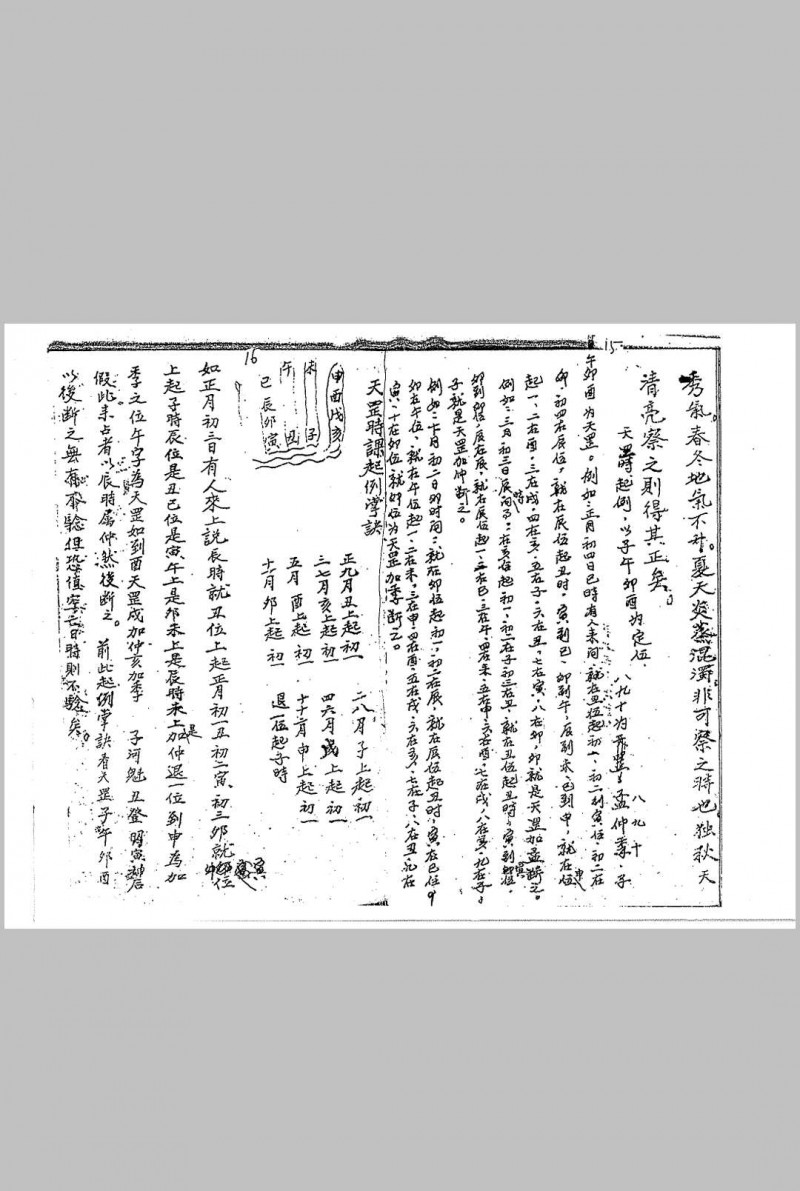 秀氣。春冬地氣不升。夏天炎蒸混濁。非可察之時也。独秋天
清亮察之則得其正矣。
天罡時起例。以子午卯酉为定位。
八九十
八九十为 孟仲季。子
午卯酉为天罡。例如。正月初四日巳時有人来问。就在丑位起初一、初二到寅位。初三在
卯。初四在辰位。就在辰位起丑时。寅到巳、卯到午、辰到未、巳到申、就在申位
起一、二在酉、三在戌、四在亥、五在子、六在丑、七在寅、八在卯、卯就是天罡加孟断之。
例如。三月初三日辰时问了。在亥位起初一、初二在子初三在丑、就在丑位起丑时、寅到寅位、
卯到卯位、辰在辰、就在辰位起一、二在巳、三在午、四在未、五在申、六在酉、七在戌、八在亥、九在子。
子就是天罡加仲断之。
例如。十月初二日卯时间。就在卯位起初一、初二在辰、就在辰位起丑时、寅在巳位
卯在午位、就在午位起一、二在未、三在申、四在酉、五在戌、六在亥、七在子、八在丑、九在
寅、十在卯位就卯位为天罡加季断之。
天罡時課起例掌訣
正九月丑上起初一 二八月子上起初一
三七月亥上起初一 四六月戌上起初一
五月酉上起初一 十十二月申上起初一
十一月卯上起初一 退一位起子時
申酉戌亥
未 子
午 丑
巳辰卯寅
如正月初三日有人來上説辰時就丑位上起正月初一丑初二寅、初三卯就卯位
上起子時辰位是丑巳位是寅午上是卯未上是辰時未上加仲退一位到申為加
季之位午字為天罡如到酉天罡戌加仲亥加季 子河魁丑登明寅神后
假此未占者以辰時屬仲然後断之。前此起例掌訣看天罡子午卯酉
以後断之無有不驗但恐值空亡日時則不驗矣。
15
16